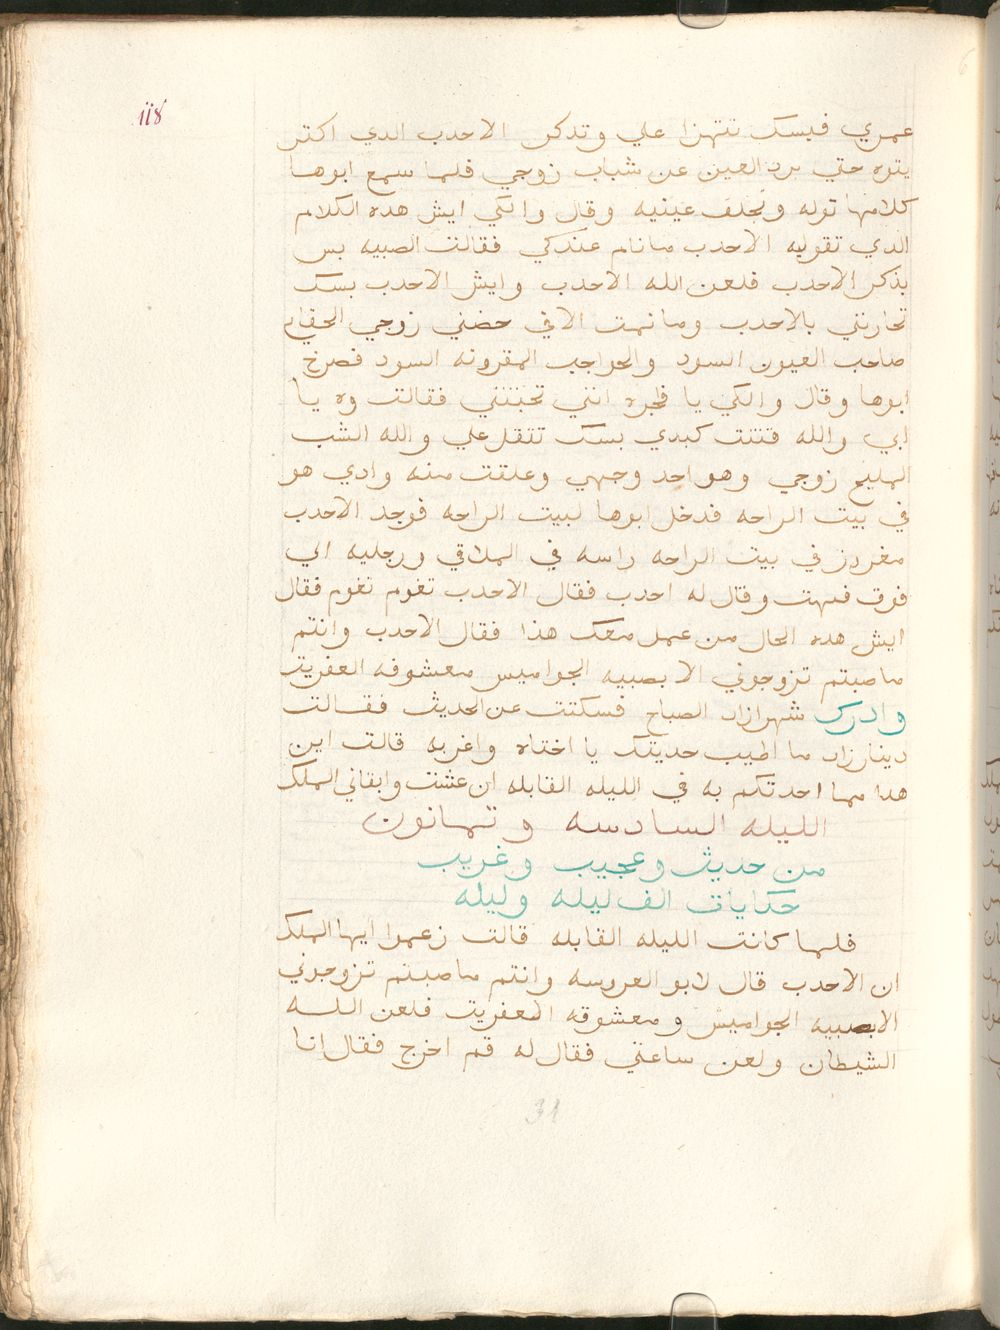 118
عمري فبسك تتهزا علي وتدكر الاحدب الدي اكتر
يتوه حتي يرد العين عن شباب زوجي فلما سمع ابوها
كلامها توله ونجلف عينيه وقال والكي ايش هده الكلام
الدي تقوليه الاحدب ما نام عندكي فقالت الصبيه بس
بذكر الاحدب فلعن الله الاحدب وايش الاحدب بسك
تحارتني بالاحدب وما نمت الا في حضني زوجي
صاحب العيون السود والحواجب المقرونه السود فصرخ
ابوها وقال والكي يا فجره انتي تخبتتني فقالت وه يا
ابي والله فتتت كبدي بسك تتقل علي والله الشب
المليح زوجي وهو اخد وجهي وعلقت منه وادي هو
في بيت الراحه فدخل ابوها لبيت الراحه فوجد الاحدب
مغروز في بيت الراحه راسه في الملاقي ورجليه الي
فوق فبهت وقال له احدب فقال الاحدب تغوم تغوم فقال
ايش هده الحال من عمل معك هذا فقال الاحدب وانتم
ما صبتم تزوجوني الا بصبيه الجواميس معشوقه العفريت
وادرك شهرازاد الصباح فسكتت عن الحديث فقالت
دينارزاد ما اطيب حديتك يا اختاه واغربه قالت اين
هدا مما احدتكم به في الليله القابله ان عشت وابقاني الملك
الليله السادسه وتمانون
من حديث وعجيب وغريب
حكايات الف ليله وليله
فلما كانت الليله القابله قالت زعموا ايها الملك
ان الاحدب قال لابو العروسه وانتم ما صبتم تزوجوني
الا بصبيه الجواميس ومعشوقه العفريت فلعن الله
الشيطان ولعن ساعتي فقال له قم اخرج فقال انا
31